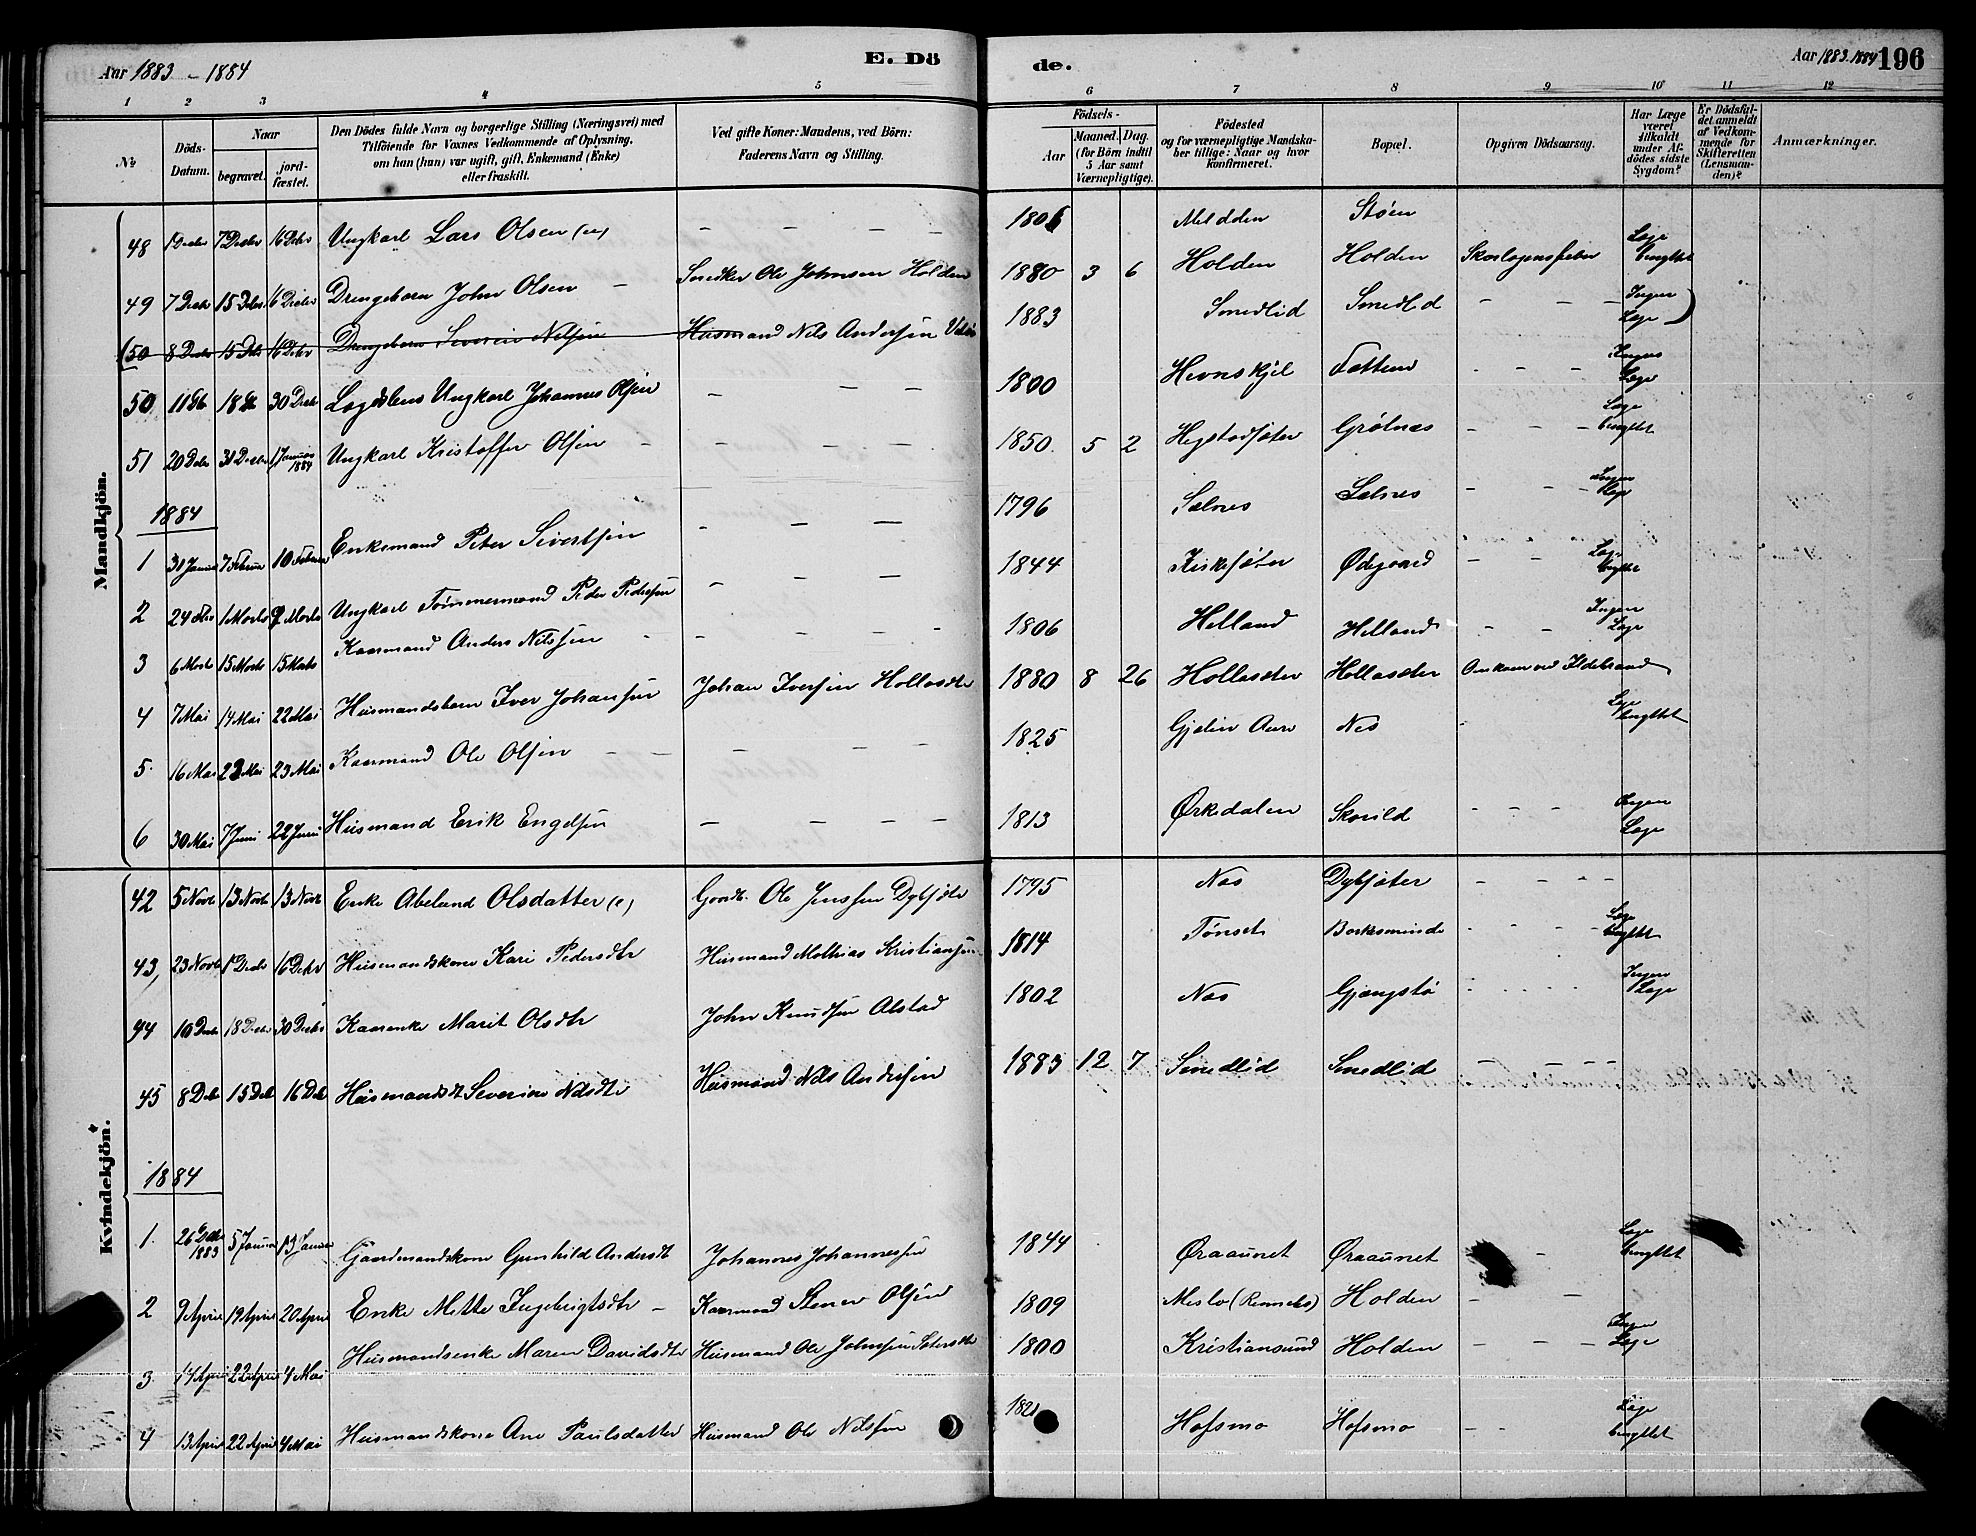 Aar 1883 - 1884
E. Dö
de.
Aar 1883. 1884 196
1 2 3 4 5 6 7 8 9 10 11 12
No
Döds-Datum.
Naar
begravet.
jord-fæstet.
Den Dödes fulde Navn og borgerlige Stilling (Næringsvei) med
Tilföiende for Voxnes Vedkommende af Oplysning,
om han (hun) var ugift, gift, Enkemand (Enke)
eller fraskilt.
Ved gifte Koner: Mandens, ved Börn:
Faderens Navn og Stilling.
Födsels-
Aar
Maaned. Dag.
(for Börn indtil
5 Aar samt
Værnepligtige).
Födested
og for værnepligtige Mandska-
ber tillige: Naar og hvor
konfirmeret.
Bopæl.
Opgiven Dödsaarsag.
Har Læge
været
tilkaldt
under Af-
dödes sidste
Sygdom?
Er Dödsfal-
det anmeldt
af Vedkom-
mende for
Skifteretten
(Lensman-
den)?
Anmærkninger.
Mandkjön.
48 1 Decbr 7 Decbr 16 Decbr Ungkarl Lars Olsen (u) - - - - 1806 Stöen
49 7 Decbr 15 Decbr 16 Decbr Drengebarn John Olsen - Snedker Ole Johnsen Holden 1880 3 6 Holden Holden Skarlagensfeber Læge benyttet
50 8 Decbr 15 Decbr 16 Decbr Drengebarn Severin Nilsen Husmand Nils Andersen 1883 Smedlid Smedlid - - - Ingen Læge
50 11 18 30 Decbr Lægdslems Ungkarl Johannes Olsen - - - 1800 Hevnskjel - - - Læge
51 20 Decbr 31 Decbr 1 Januar 1884 Ungkarl Kristoffer Olsen - - - - 1850 5 2 Grötnes - - - Læge benyttet
1884
1 31 Januar 7 Februar 10 Februar Enkemand Peter Sivertsen - - - 1796 Selnes Selnes - - - Ingen Læge
2 24 1 Marts 9 Marts Ungkarl Tömmermand Peder Pedersen - - - 1844 Ødegaard - - Læge benyttet
3 6 Marts 15 Marts 15 Marts Kaarmand Anders Nilssen - - - - 1806 Helland Helland - - Ingen Læge
4 7 Mai 14 Mai 22 Mai Husmandsbarn Iver Johansen Johan Iversen 1880 8 26 Omkom ved Ildebrand
5 16 Mai 23 Mai 23 Mai Kaarmand Ole Olsen - - - - - 1825 Nes - Læge benyttet
6 30 Mai 7 Juni 22 Juni Husmand Erik Engelsen - - - - 1813 Ørkedalen Skorild - - - Ingen Læge
Kvindekjön.
42 5 Novbr 13 Novbr 13 Novbr Enke Abelund Olsdatter (e) Ole Jenssen 1795 Nes - - - -
43, 23 Novbr 1 Decbr 16 Decbr Husmandskone Kari Pedersdtr Husmand Mathias Kristiansen 1814 Tönset - - - - Læge benyttet
44 10 Decbr 18 Decbr 30 Decbr Kaarenke Marit Olsdtr John Knudsen Alstad 1802 Nes Gjengstö Ingen Læge
45 8 Decbr 15 Decbr 16 Decbr Husmandsdt Severine Nilsdtr Husmand Nils Andersen 1883 12 7 Smedlid Smedlid - - - -
1884
1. 26 Decbr 1883 5 Januar 13 Januar Gaardmandskone Gunhild Andersdt Johannes Johannessen 1844 Øraaunet Øraaunet - Læge benyttet
2 9 April 19 April 20 April Enke Mette Ingebrigtsdtr - Kaarmand Stener Olsen 1809 Holden - -
3 14 April 22 April 4 Mai Husmandsenke Maren Davidsdtr Husmand Ole Johnsen 1800 Kristiansund Holden - - - Ingen Læge
4 13 April 22 April 4 Mai Husmandskone Ane Paulsdatter Husmand Ole Nilssen 182 Hofsmo Hofsmo - - Læge benyttet